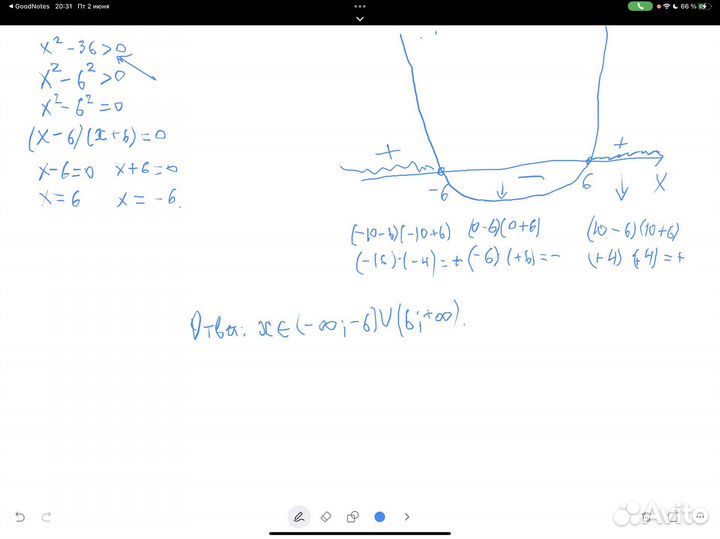 ◀ GoodNotes 20:31 Пт 2 июня
66 %
x² - 36 > 0
x² - 6² > 0
x² - 6² = 0
(x - 6)(x + 6) = 0
x - 6 = 0 x + 6 = 0
x = 6 x = -6.
+ − +
-6 6 x
(-10-6)(-10+6) (0-6)(0+6) (10-6)(10+6)
(-6) · (+6) = -
Ответ: x ∈ (-∞; -6) ∪ (6; +∞).
Avito